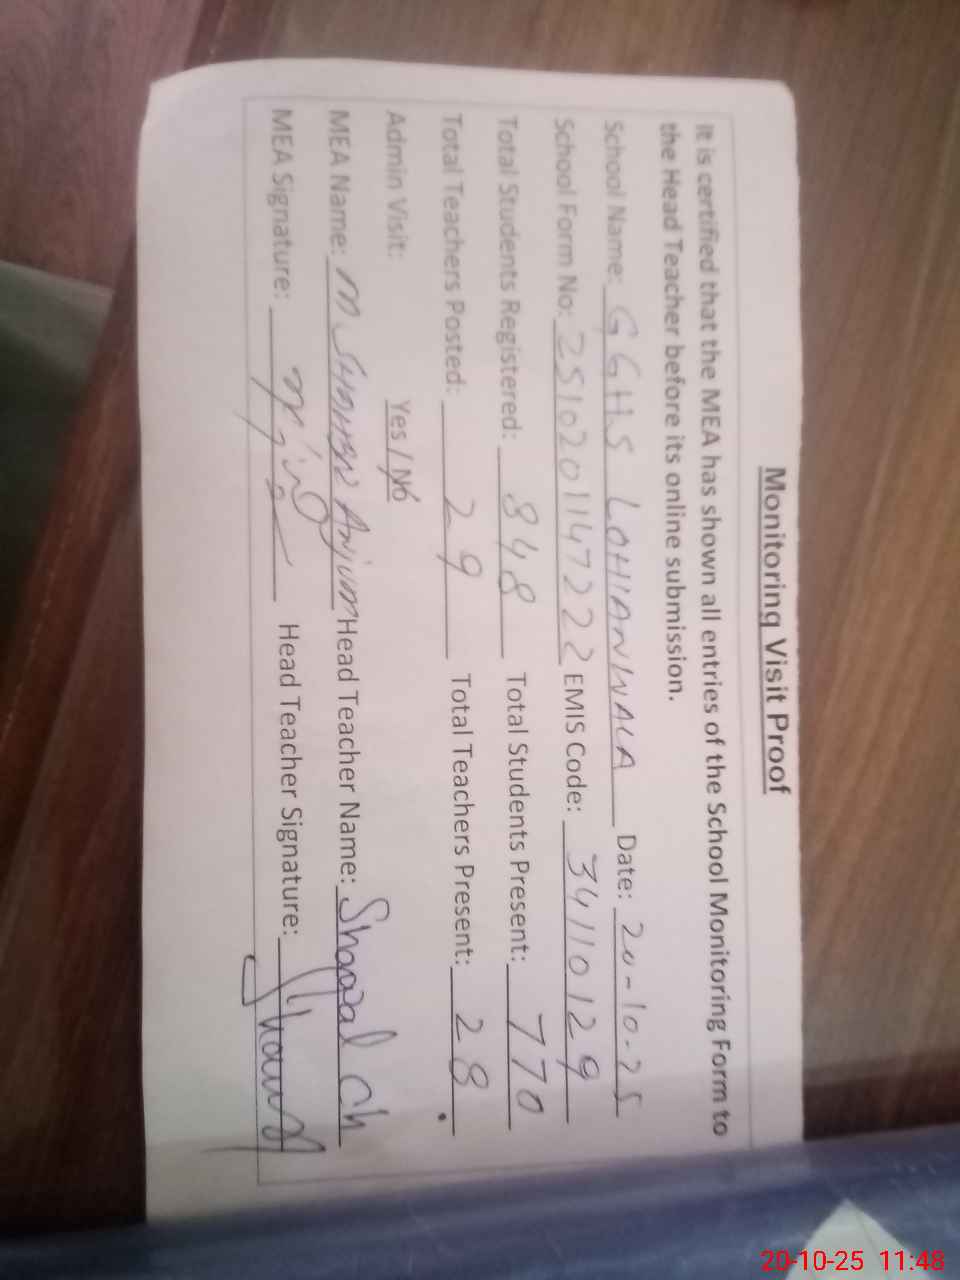 Monitoring Visit Proof
It is certified that the MEA has shown all entries of the School Monitoring Form to
the Head Teacher before its online submission.
School Name: GGHS LOHIANWALA Date: 20-10-25
School Form No: 2510201147222 EMIS Code: 34110129
Total Students Registered: 848 Total Students Present: 770
Total Teachers Posted: 29 Total Teachers Present: 28
Admin Visit: Yes / No
MEA Name: M Anjum Head Teacher Name: Ch
MEA Signature: Head Teacher Signature:
20-10-25 11:48